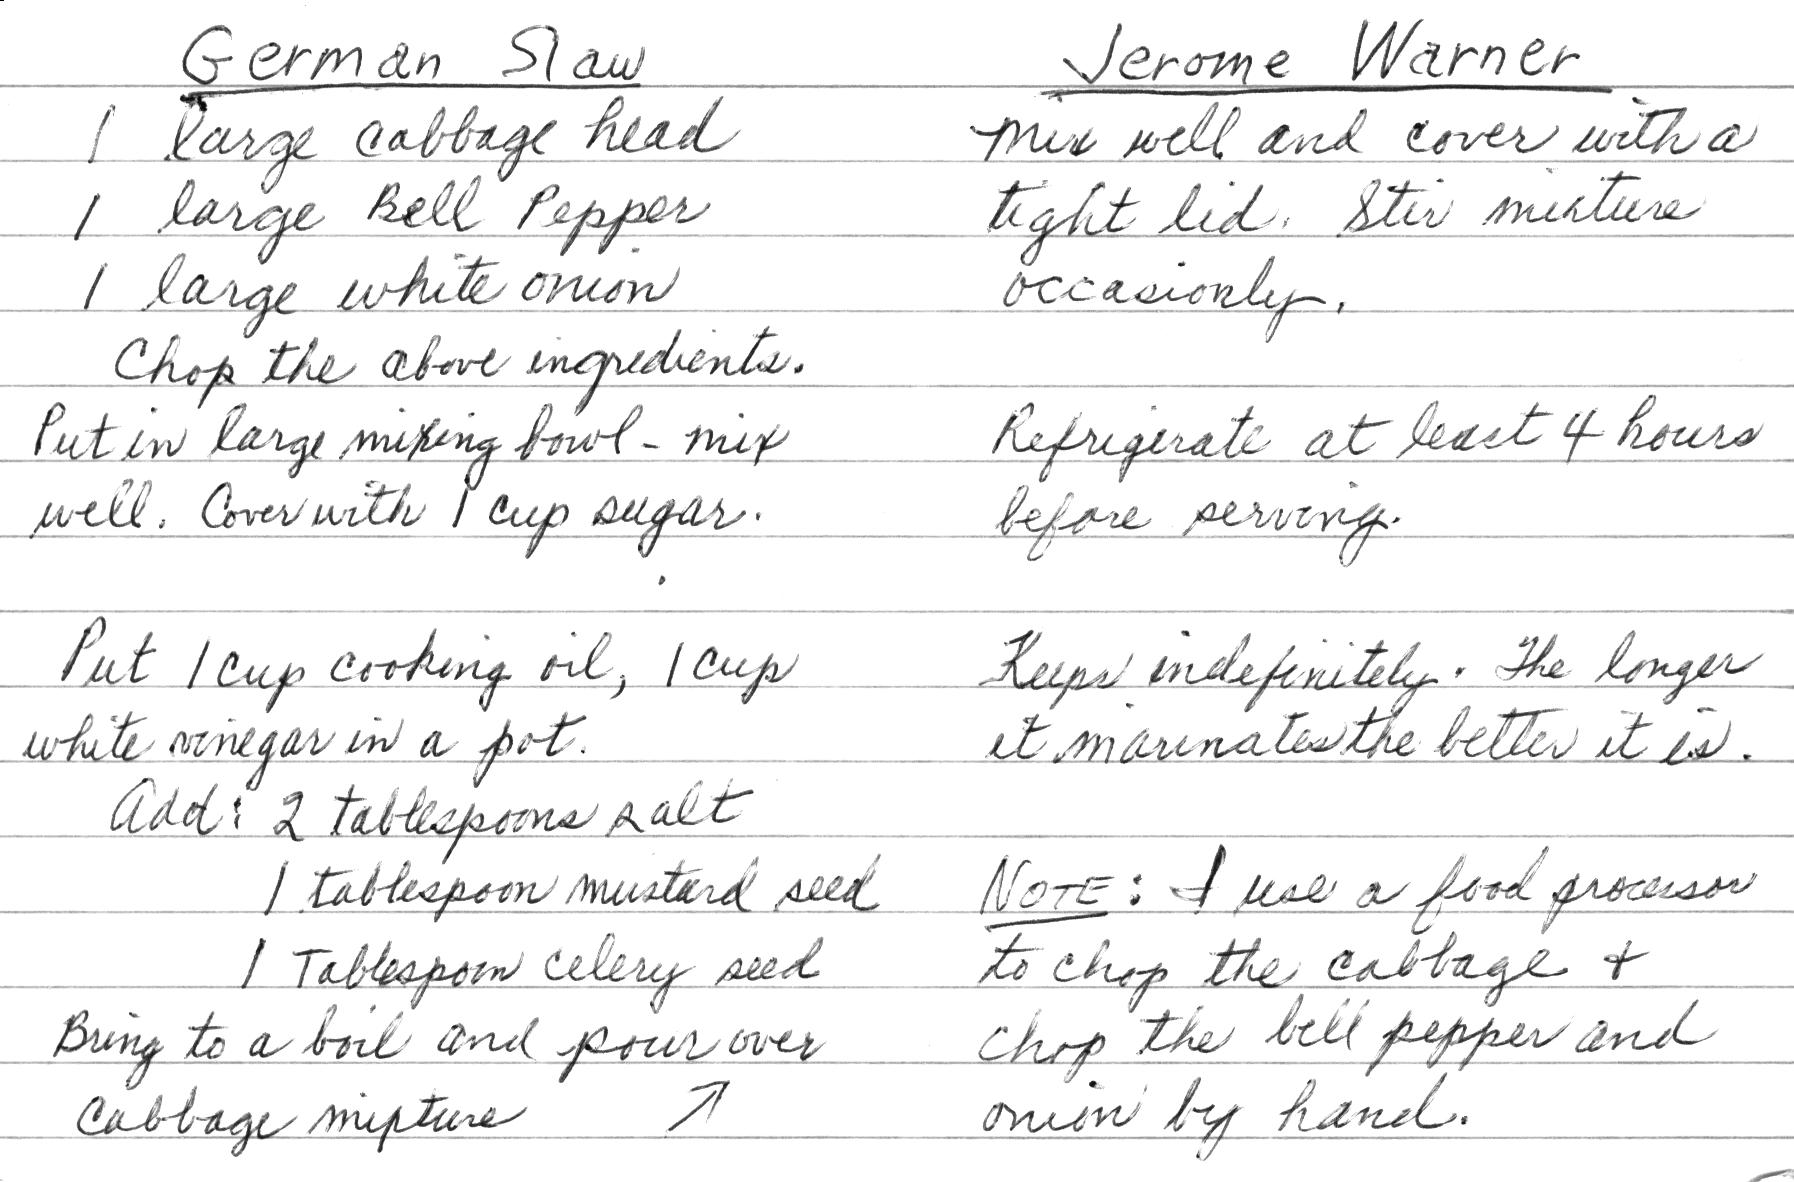 German Slaw
1 large cabbage head
1 large Bell Pepper
1 large white onion
Chop the above ingredients.
Put in large mixing bowl - mix
well. Cover with 1 cup sugar.
Put 1 cup cooking oil, 1 cup
white vinegar in a pot.
Add: 2 tablespoons salt
1 tablespoon mustard seed
1 Tablespoon celery seed
Bring to a boil and pour over
cabbage mixture ↗
Jerome Warner
Mix well and cover with a
tight lid. Stir mixture
occasionly.
Refrigerate at least 4 hours
before serving.
Keeps indefinitely. The longer
it marinates the better it is.
NOTE: I use a food processor
to chop the cabbage +
chop the bell pepper and
onion by hand.